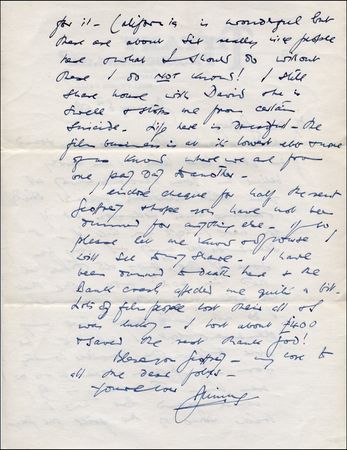 for it - California is wonderful but
there are about six really nice people
here & what I should do without
them I do NOT know! I still
share house with David who is
swell & stops me from certain
suicide. Life here is Dreadful - the
film business is at its lowest ebb & none
of us know where we are from
one pay day to another -
I enclose cheque for half the rent
Geoffrey & hope you have not been
dunned for anything else - If so
please let me know & of course I
will send my share - I have
been dunned to death here & the
Bank crash affected me quite a bit -
Lots of film people lost their all so I
was lucky - I lost about £400
& saved the rest thank God!
Bless you Geoffrey - my love to
all the dear folks -
Yours ever
Jimmy